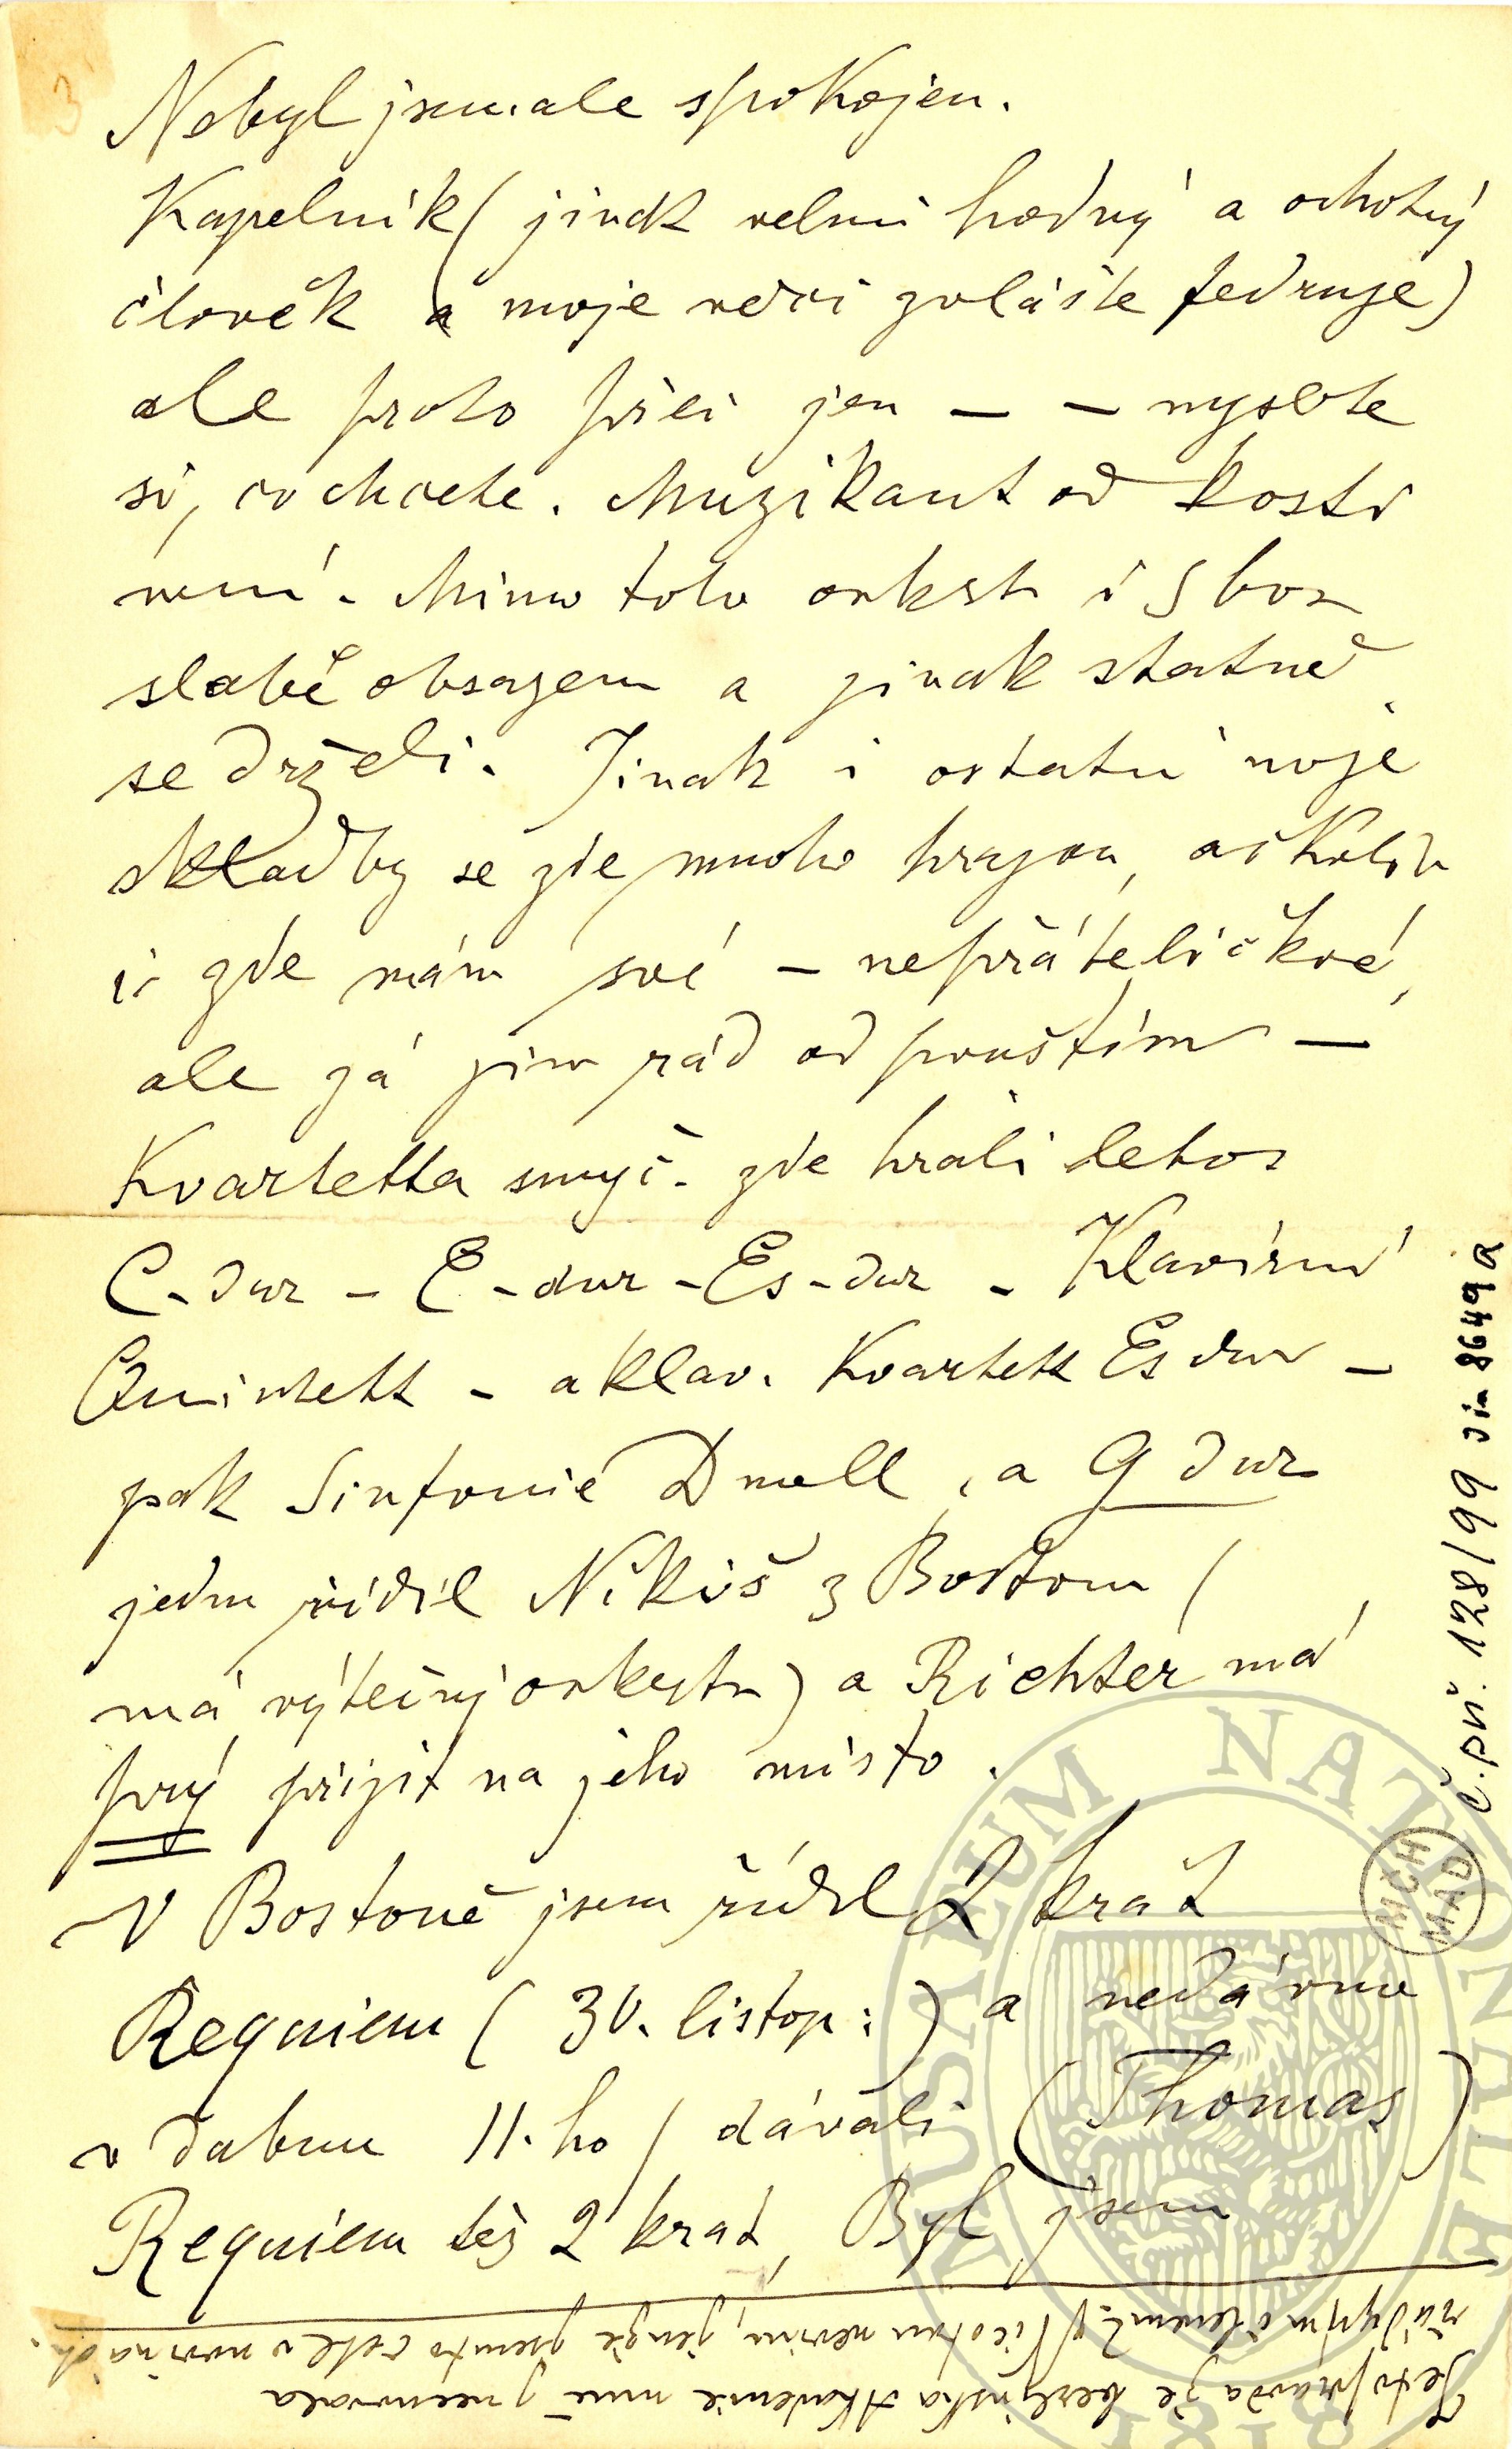 3
Nebyl jsem ale spokojen.
Kapelník (jinak velmi hodný a ochotný
človék a moje věci zvláště fedruje)
ale proto přei jen — — myslete
si, co chcete. Muzikant od kosti
není. Mimo toho orkestr i Sbor
slabě obsazen a jinak statně
se drželi. Jinak i ostatní moje
skladby se zde mnoho hrajou, ačkoliv
i zde mám své — nepřáteličkové,
ale já jim rád odpouštím —
Kvartetta smyč. zde hráli letos
C-dur - E-dur - Es-dur - Klavírní
Quintett - a klav. Kvartett Es dur -
pak Sinfonie D moll, a G dur
jednu řídil Nikiš z Bostonu (
má výtečný orkestr) a Richter má
prý přijít na jeho místo.
V Bostoně jsem řídil 2 krat
Requiem (30. listop:) a nedávno
v dubnu 11. ho / dávali (Thomas)
Requiem též 2 krat, Byl jsem
Je to pravda že berlínská Akademie mně jmenovala
řádným členem? Nic o tom nevím, jenže jsem to četl v novinách.
č. př. 128/99 Jin 8649 a
MČH
MAD
MUSAEUM NATIONALE
1818